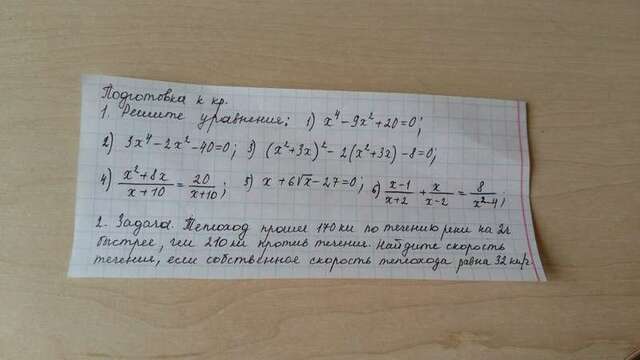 Подготовка к кр.
1. Решите уравнения: 1) x⁴ - 9x² + 20 = 0;
2) 3x⁴ - 2x² - 40 = 0; 3) (x² + 3x)² - 2(x² + 3x) - 8 = 0;
4) (x² + 8x)/(x + 10) = 20/(x + 10); 5) x + 6√x - 27 = 0; 6) (x - 1)/(x + 2) + x/(x - 2) = 8/(x² - 4);
2. Задача. Теплоход прошел 170 км по течению реки на 2ч
быстрее, чем 210 км против течения. Найдите скорость
течения, если собственное скорость теплохода равна 32 км/ч